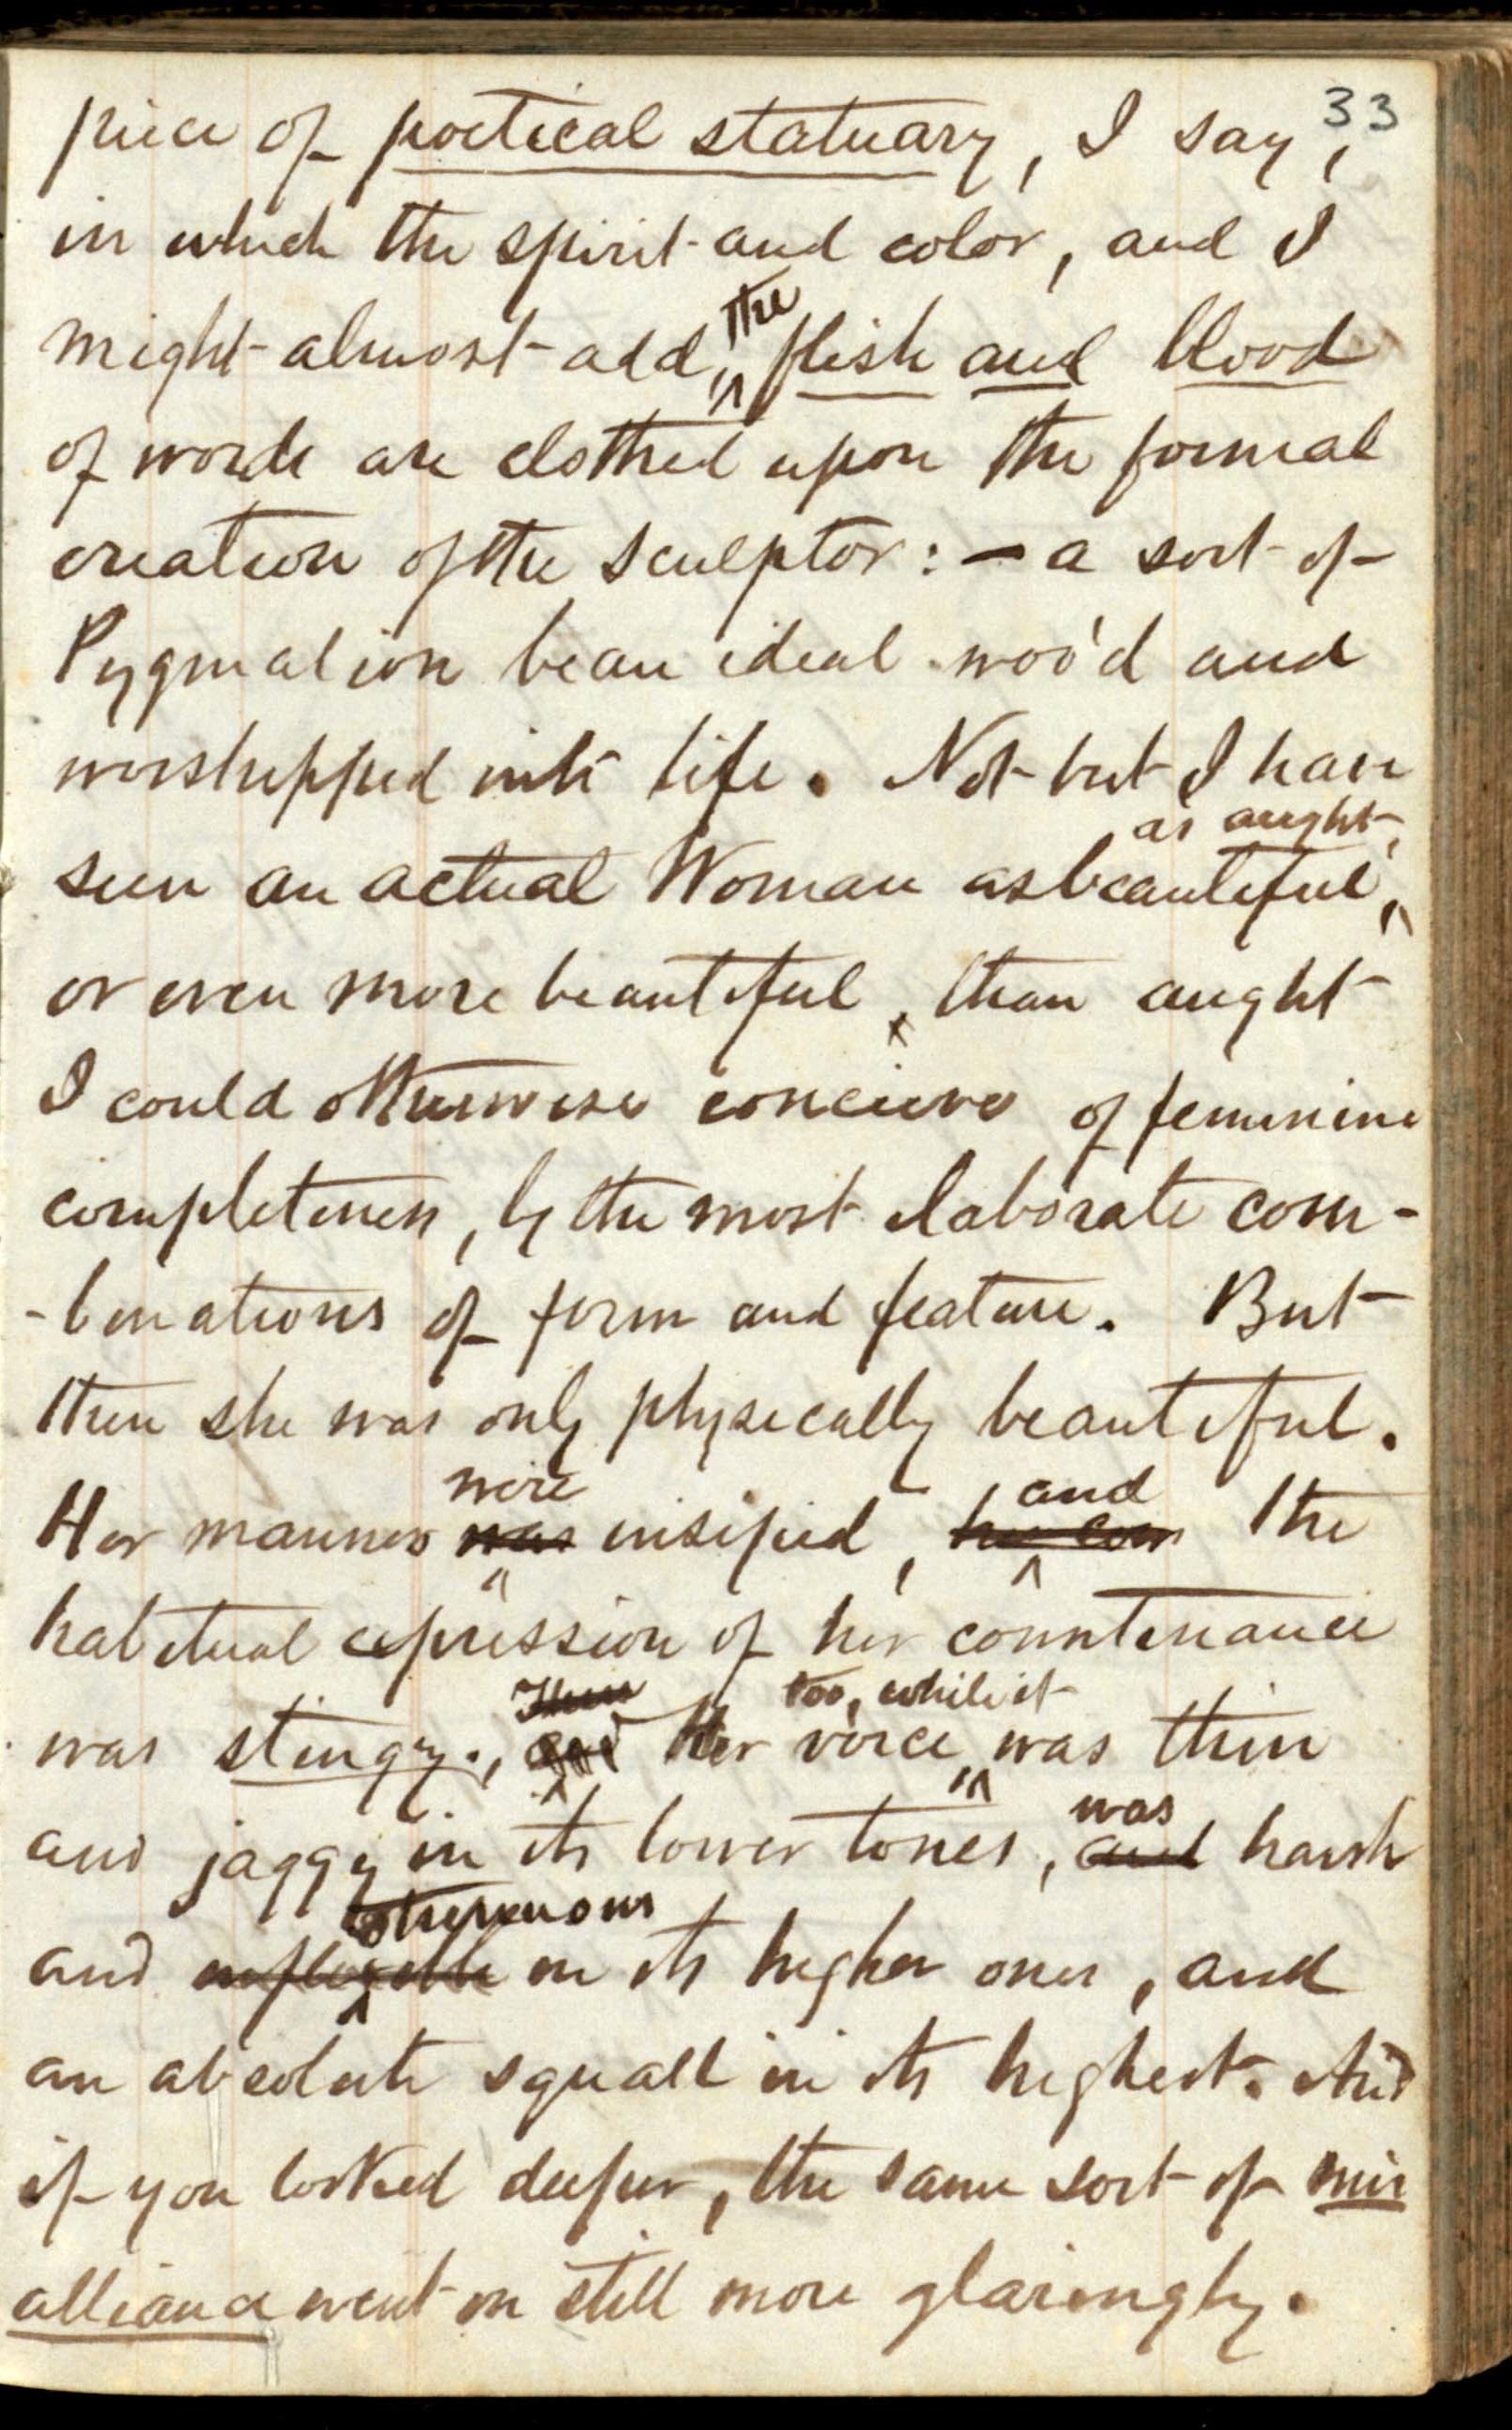 33
piece of poetical statuary, I say,
in which the spirit and color, and I
might almost add, the flesh and blood
of words are clothed upon the formal
creation of the sculptor: — a sort of
Pygmalion beau ideal woo'd and
worshipped into life. Not but I have
as aught
seen an actual Woman as beautiful,
or even more beautiful, than aught
I could otherwise concieve of feminine
completeness, by the most elaborate com-
-binations of form and feature. But
then she was only physically beautiful.
were and
Her manners was insipid, her coun the
habitual expression of her countenance
Then too, while it
was stingy., and Her voice, was thin
was
and jaggy in its lower tones, and harsh
strenuous
and inflexible in its higher ones, and
an absolute squall in its highest. And
if you looked deeper, the same sort of mis
alliance went on still more glaringly.